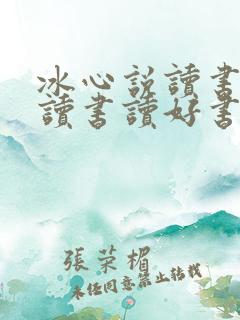 冰心説讀書
讀書讀好書
張荣楣
未经同意禁止转载